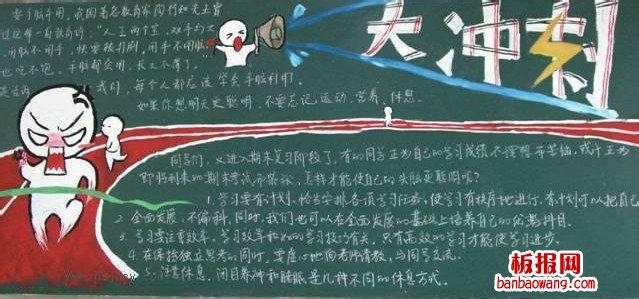 大冲刺
要手脑并用，我国著名教育家陶行知先生曾
过这样一首歌谣："人生两个宝，双手与大
用脑不用手，快要被打倒，用手不用脑，
也吃不饱。手脑都会用，
我们，每个人都应该学会手脑并用。
如果你想明天更聪明，不要忘记运动、营养、休息。
同学们，又进入期末复习阶段了，有的同学正为自己的学习成绩不理想而苦恼，或许正为
即将到来的期末考试而 ，怎样才能使自己的头脑更聪明呢？
1. 学习要有计划，恰当安排各项学习任务，使学习有秩序地进行。有计划可以把自己
2. 全面发展，不偏科，同时，我们也可以在全面发展的基础上培养自己的优势科目。
3. 学习要注重效率，学习效率和 的学习技巧有关，只有高效的学习才能使学习进步。
4. 在保持独立思考的同时，要虚心地向老师请教，与同学交流。
5. 注意休息，闭目养神和睡眠是几种不同的休息方式。
板报网
banbaowang.com